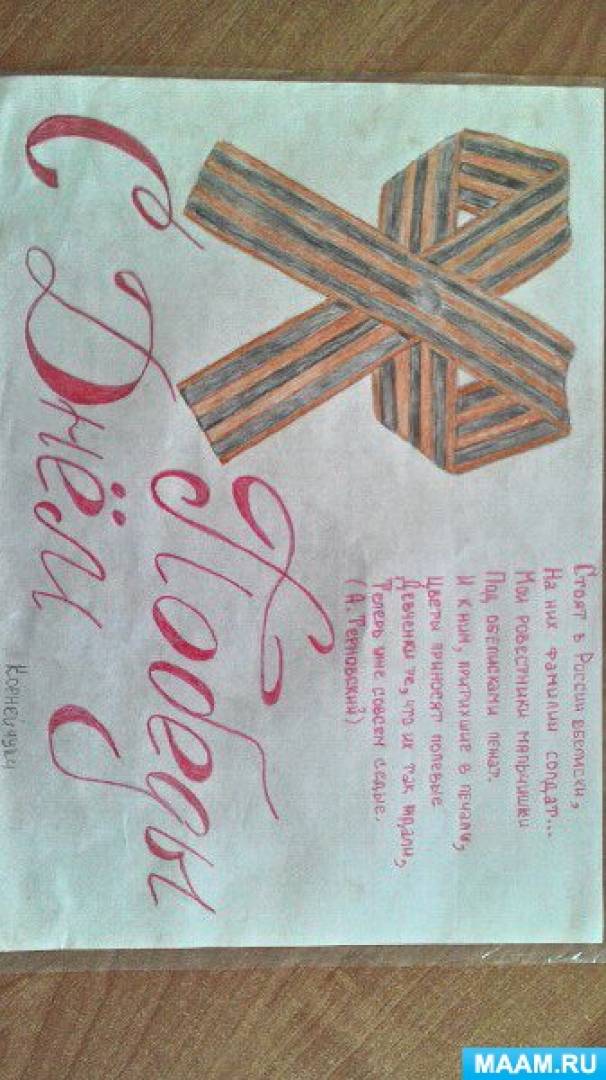 Стоят в России обелиски,
На них фамилии солдат...
Мои ровестники мальчишки
Под обелисками лежат.
И к ним, притихшие в печали,
Цветы приносят полевые
Девчонки те, что их так ждали,
Теперь уже совсем седые.
(А. Терновский)
С Днём
Победы
MAAM.RU